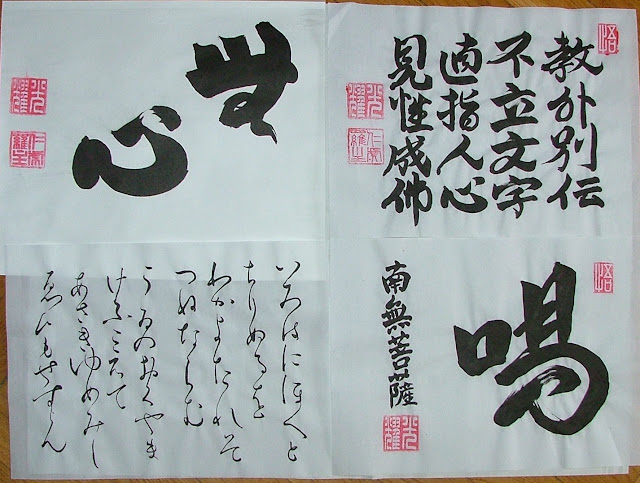 悟
教外別伝
不立文字
直指人心
見性成佛
光耀
無心
光耀
悟
喝
南無菩薩
光耀
いろはにほへと
ちりぬるを
わかよたれそ
つねならむ
うゐのおくやま
けふこえて
あさきゆめみし
ゑひもせすん